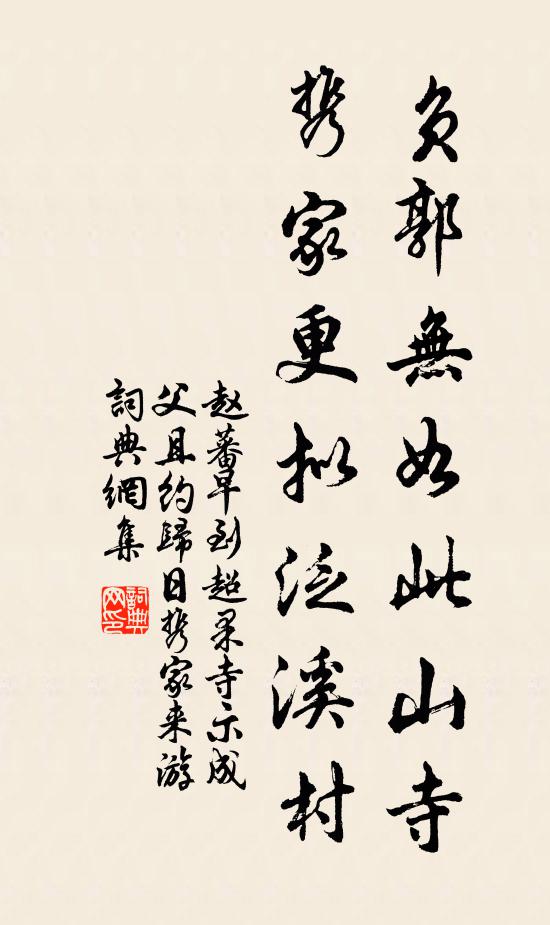 负郭無如此山寺
携家更拟泛溪村
赵蕃早到超果寺示成
父且约歸日携家来游
詞典網集
詞典网印